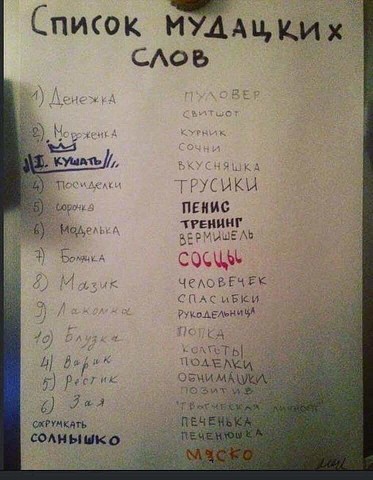 Список мудацких
слов
1) Денежка
2) Мороженка
I. кушать
4) посиделки
5) сорочка
6) Маделька
7) Болячка
8) Мазик
9) Лакомка
10) Блузка
4) Варак
5) Ростик
6) Зая
схрумкать
солнышко
пуловер
свитшот
курник
сочни
вкусняшка
трусики
пенис
тренинг
вермишель
сосцы
человечек
спасибки
рукодельница
попка
колготы
поделки
обнимашки
позитив
творческая личность
печенька
печенюшка
мяско